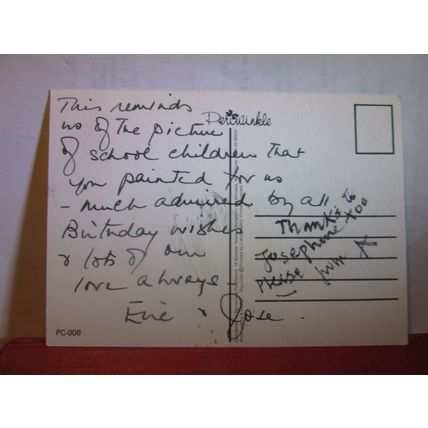 This reminds
us of the picture
of school children that
you painted for us
- much admired by all
Birthday wishes
& lots of our
love always
Eric & Jose.
Periwinkle
Thanks to
Josephine too
please
from A
PC-006